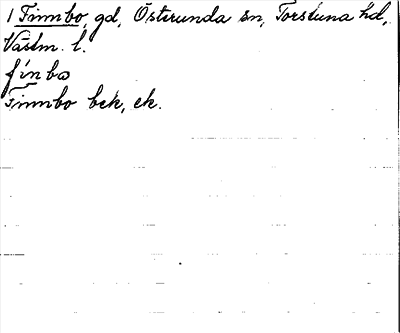 1 Finnbo, gd, Österunda sn, Torstuna hd,
Västm. l.
finbω
Finnbo bek, ek.